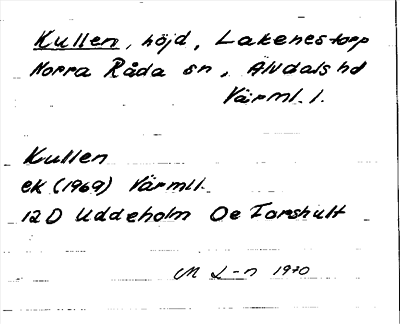 Kullen, höjd, Lakenestorp
Norra Råda sn, Älvdals hd
Värml. l.
Kullen
ek (1969) Värmll.
12 D Uddeholm 0e Torshult
M L-n 1970